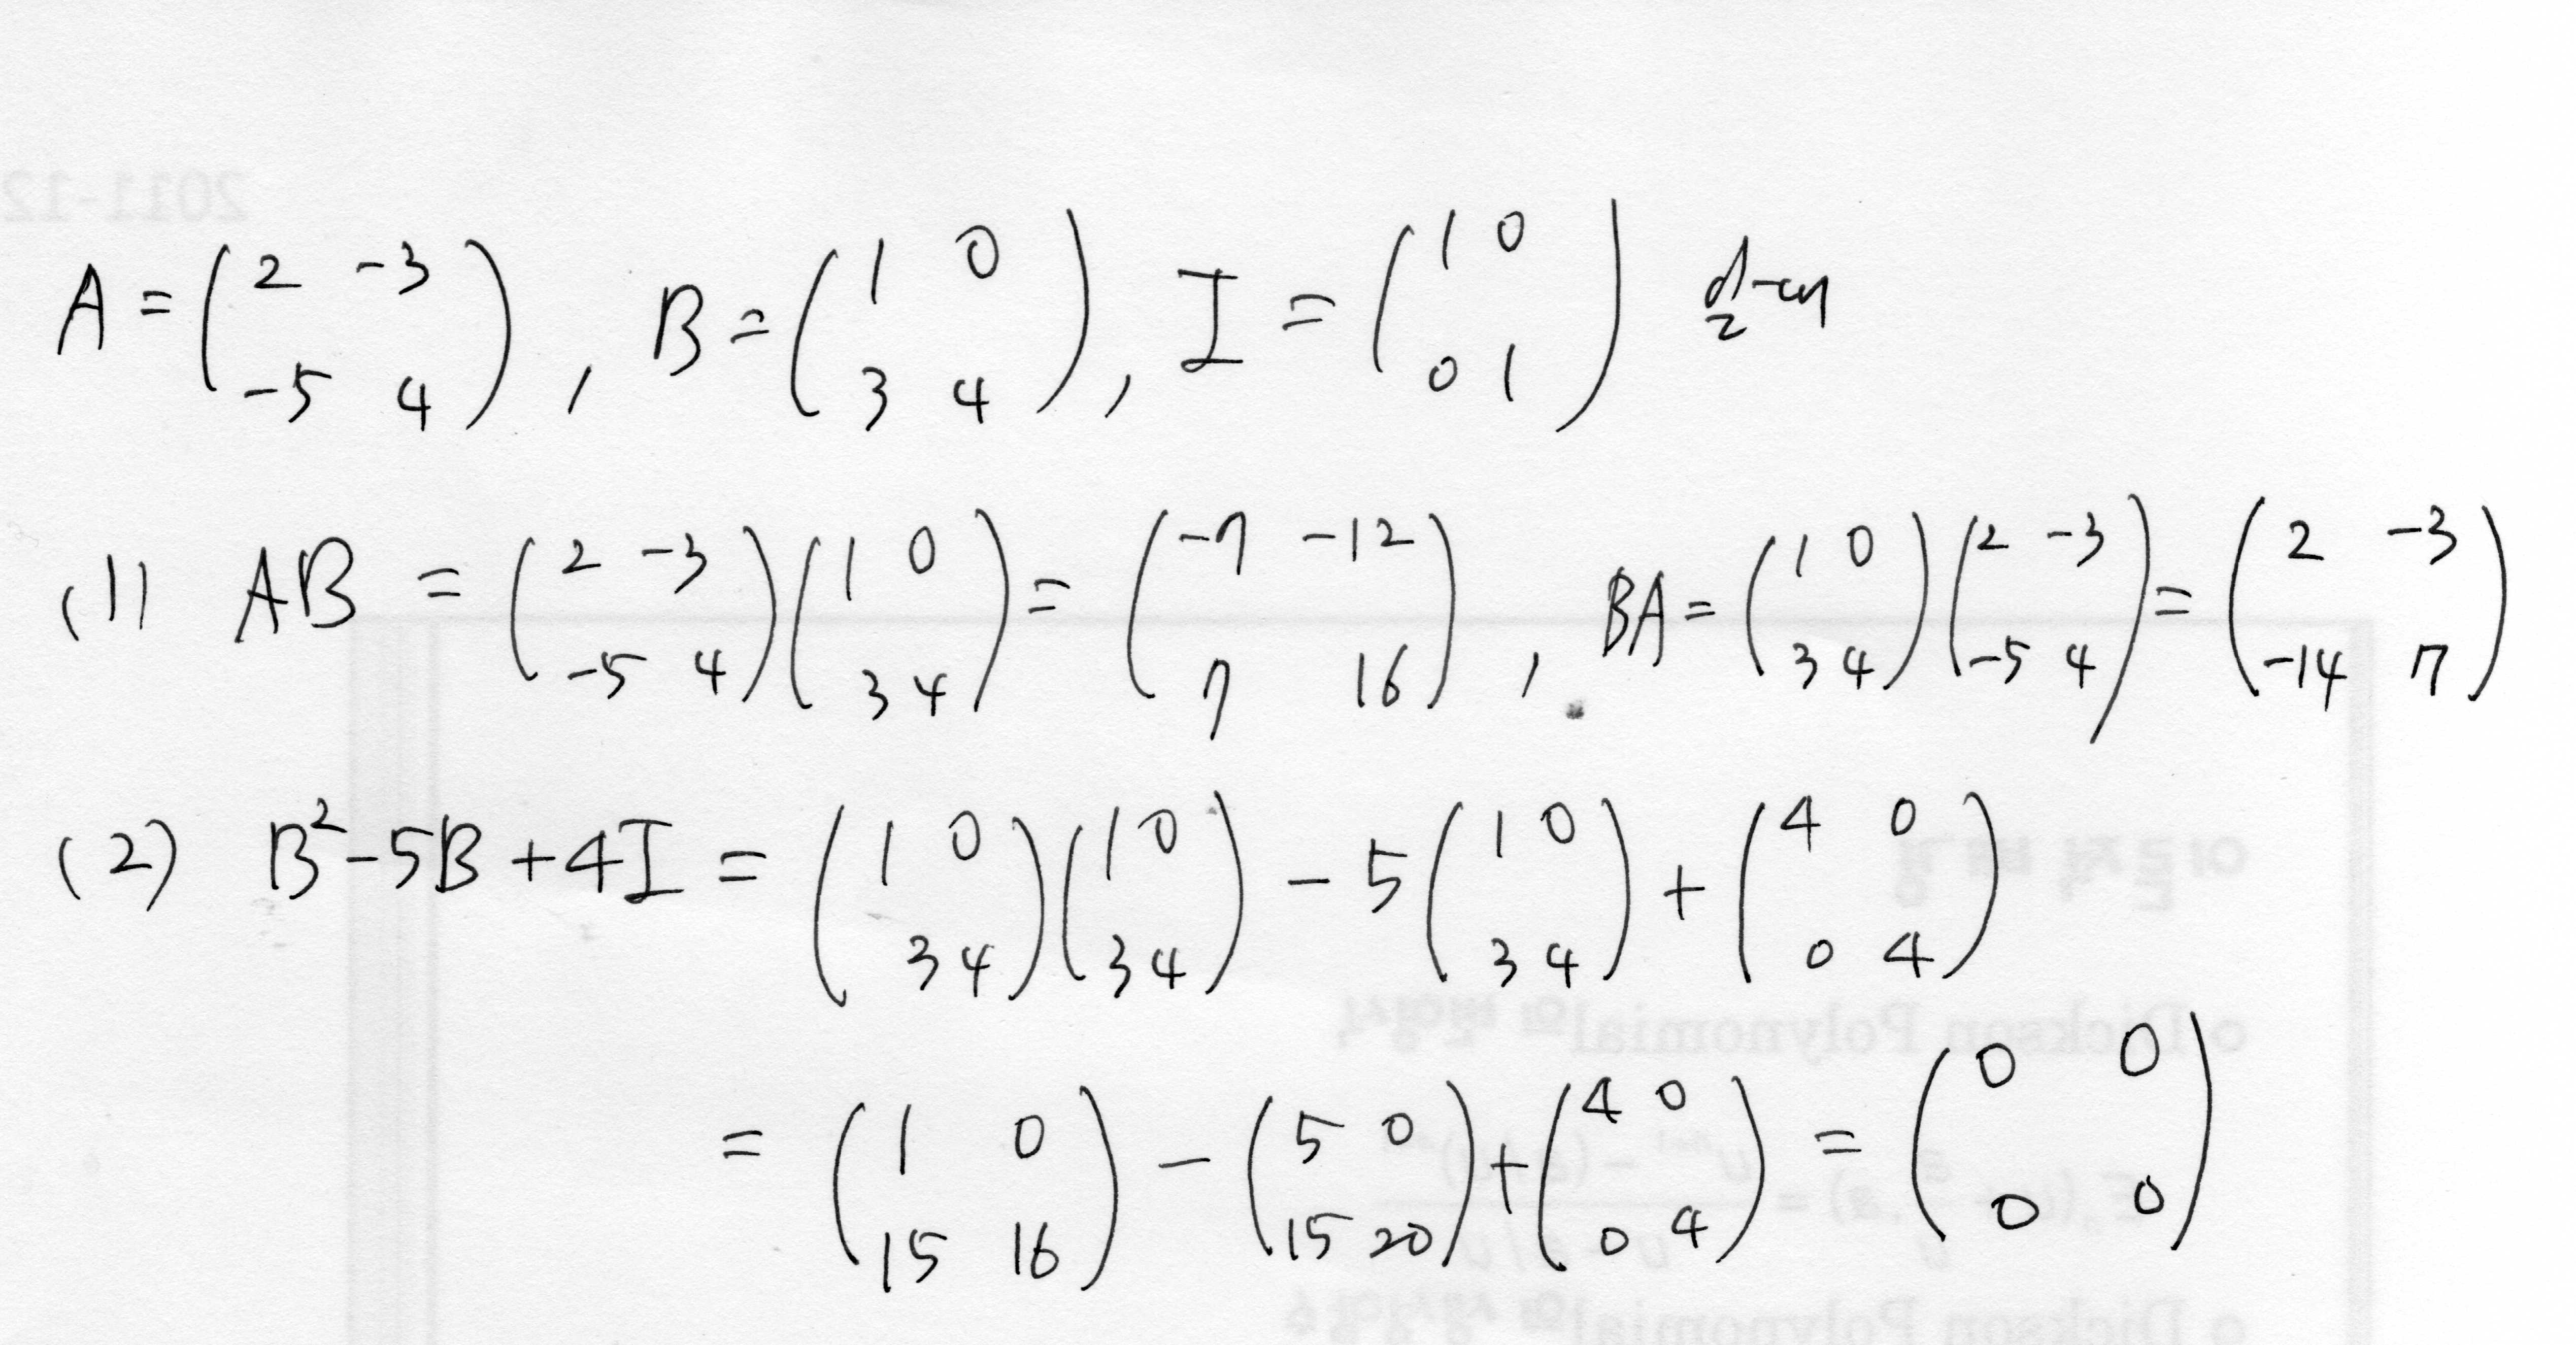 A = ( 2 -3 ; -5 4 ), B = ( 1 0 ; 3 4 ), I = ( 1 0 ; 0 1 ) 일 때
(1) AB = ( 2 -3 ; -5 4 )( 1 0 ; 3 4 ) = ( -7 -12 ; 7 16 ), BA = ( 1 0 ; 3 4 )( 2 -3 ; -5 4 ) = ( 2 -3 ; -14 7 )
(2) B² - 5B + 4I = ( 1 0 ; 3 4 )( 1 0 ; 3 4 ) - 5( 1 0 ; 3 4 ) + ( 4 0 ; 0 4 )
= ( 1 0 ; 15 16 ) - ( 5 0 ; 15 20 ) + ( 4 0 ; 0 4 ) = ( 0 0 ; 0 0 )